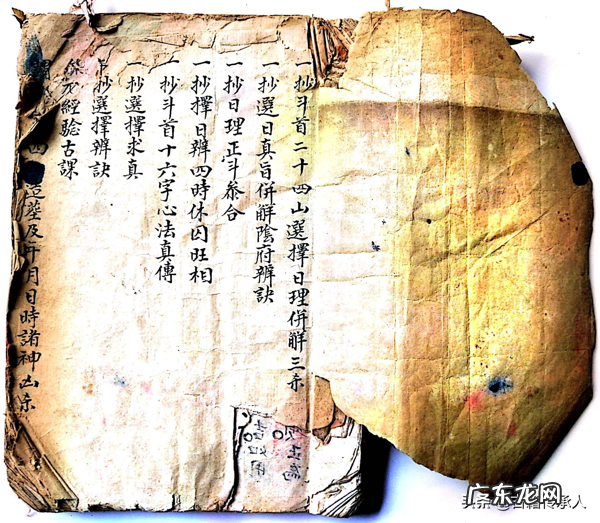 一抄斗首二十四山選擇日理併解三杀
一抄選日真旨併解陰府辨訣
一抄日理正斗叅合
一抄擇日辨四時休囚旺相
一抄斗首十六字心法真傳
一抄選擇求真
抄選擇辨訣
經驗古課
造塟及年月日時諸神凶杀
广东龙网